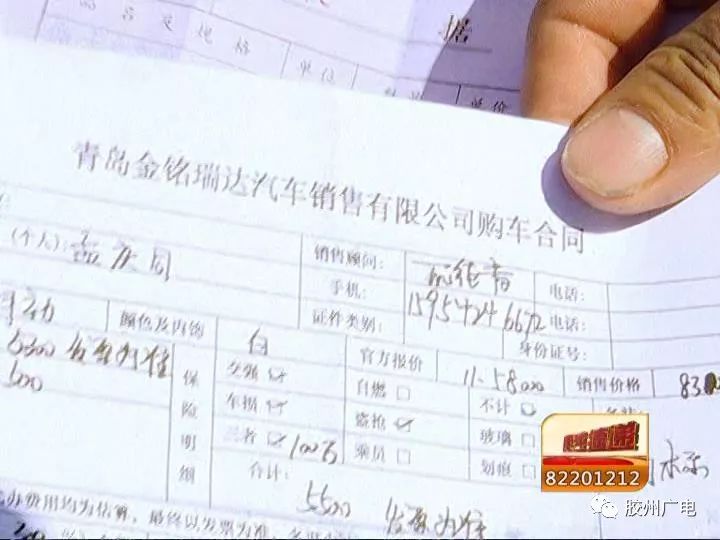 品名及规格 单位 单价
据
青岛金铭瑞达汽车销售有限公司购车合同
(个人): 孟庆同 销售顾问:
手机: 15954246672 电话:
证件类别: 电话:
身份证号:
手动 颜色及内饰 白 官方报价 11.58000 销售价格
发票为准 保险明细 交强 自燃 不计
500 车损 盗抢 玻璃
三者 100万 乘员 划痕
合计: 5500 发票为准
办费用均为估算,最终以发票为准
82201212
胶州广电